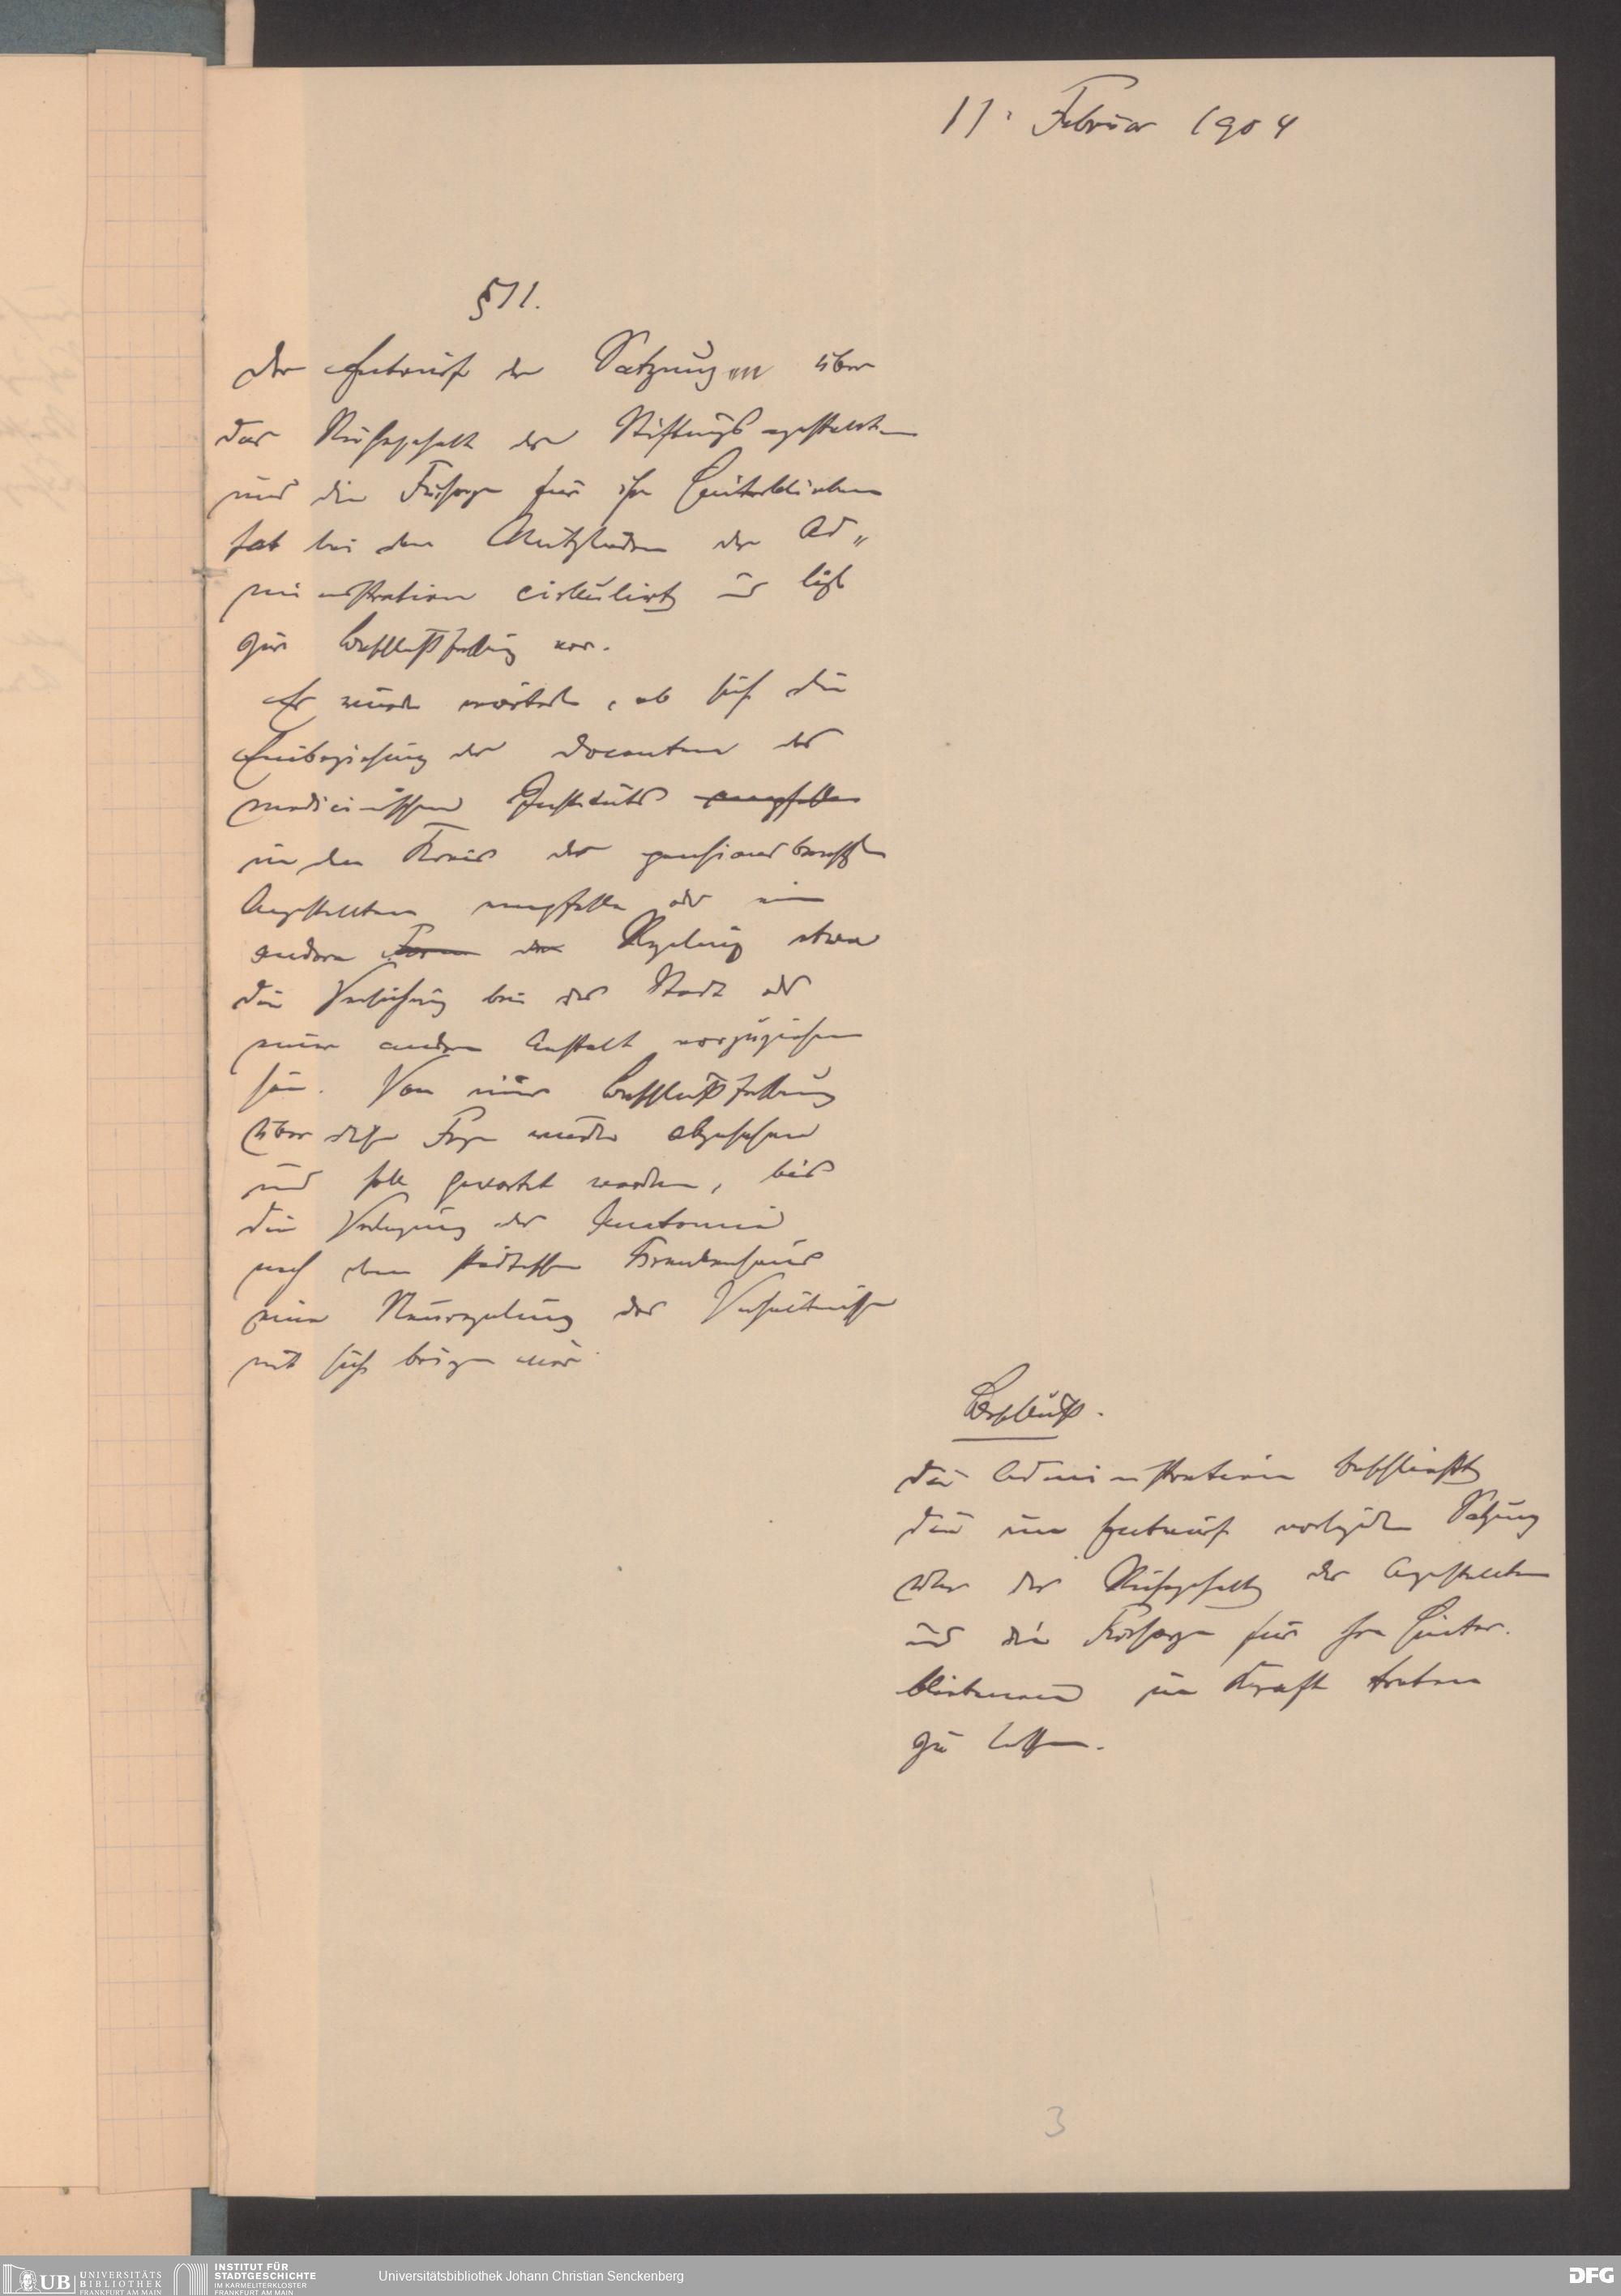 11. Februar 1904
§ 11.
Der Entwurf der Satzungen über
das Ruhegehalt der Stiftungsangestellten
und die Fürsorge für ihre Hinterbliebenen
hat bei den Mitgliedern der Ad„
ministration cirkulirt und liegt
zur Beschlußfassung vor.
Es wurde erörtert, ob sich die
Einbeziehung der Docenten des
medicinischen Instituts empfehle
in den Kreis der pensionsberechtigten
Angestellten empfehle oder eine
andere Form der Regelung etwa
die Versicherung bei der Stadt oder
einer anderen Anstalt vorzuziehen
sei. Von einer Beschlußfassung
über diese Frage wurde abgesehen
und soll gewartet werden, bis
die Verlegung der Anatomie
nach dem städtischen Krankenhause
eine Neuregelung der Verhältnisse
mit sich bringen wird.
Beschluß.
Die Administration beschließt
die im Entwurf vorliegenden Satzungen
über das Ruhegehalt der Angestellten
und die Fürsorge für ihre Hinter.
bliebenen in Kraft treten
zu lassen.
3
UB UNIVERSITÄTS
BIBLIOTHEK
FRANKFURT AM MAIN
INSTITUT FÜR
STADTGESCHICHTE
IM KARMELITERKLOSTER
FRANKFURT AM MAIN
Universitätsbibliothek Johann Christian Senckenberg
DFG